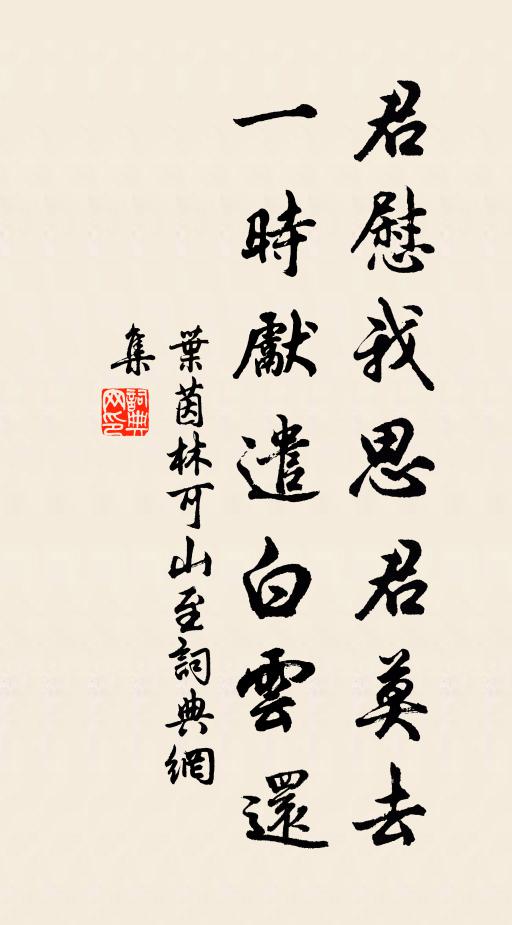 君慰我思君莫去
一時獻遣白雲還
葉茵林可山至詞典網
集
詞典
网印